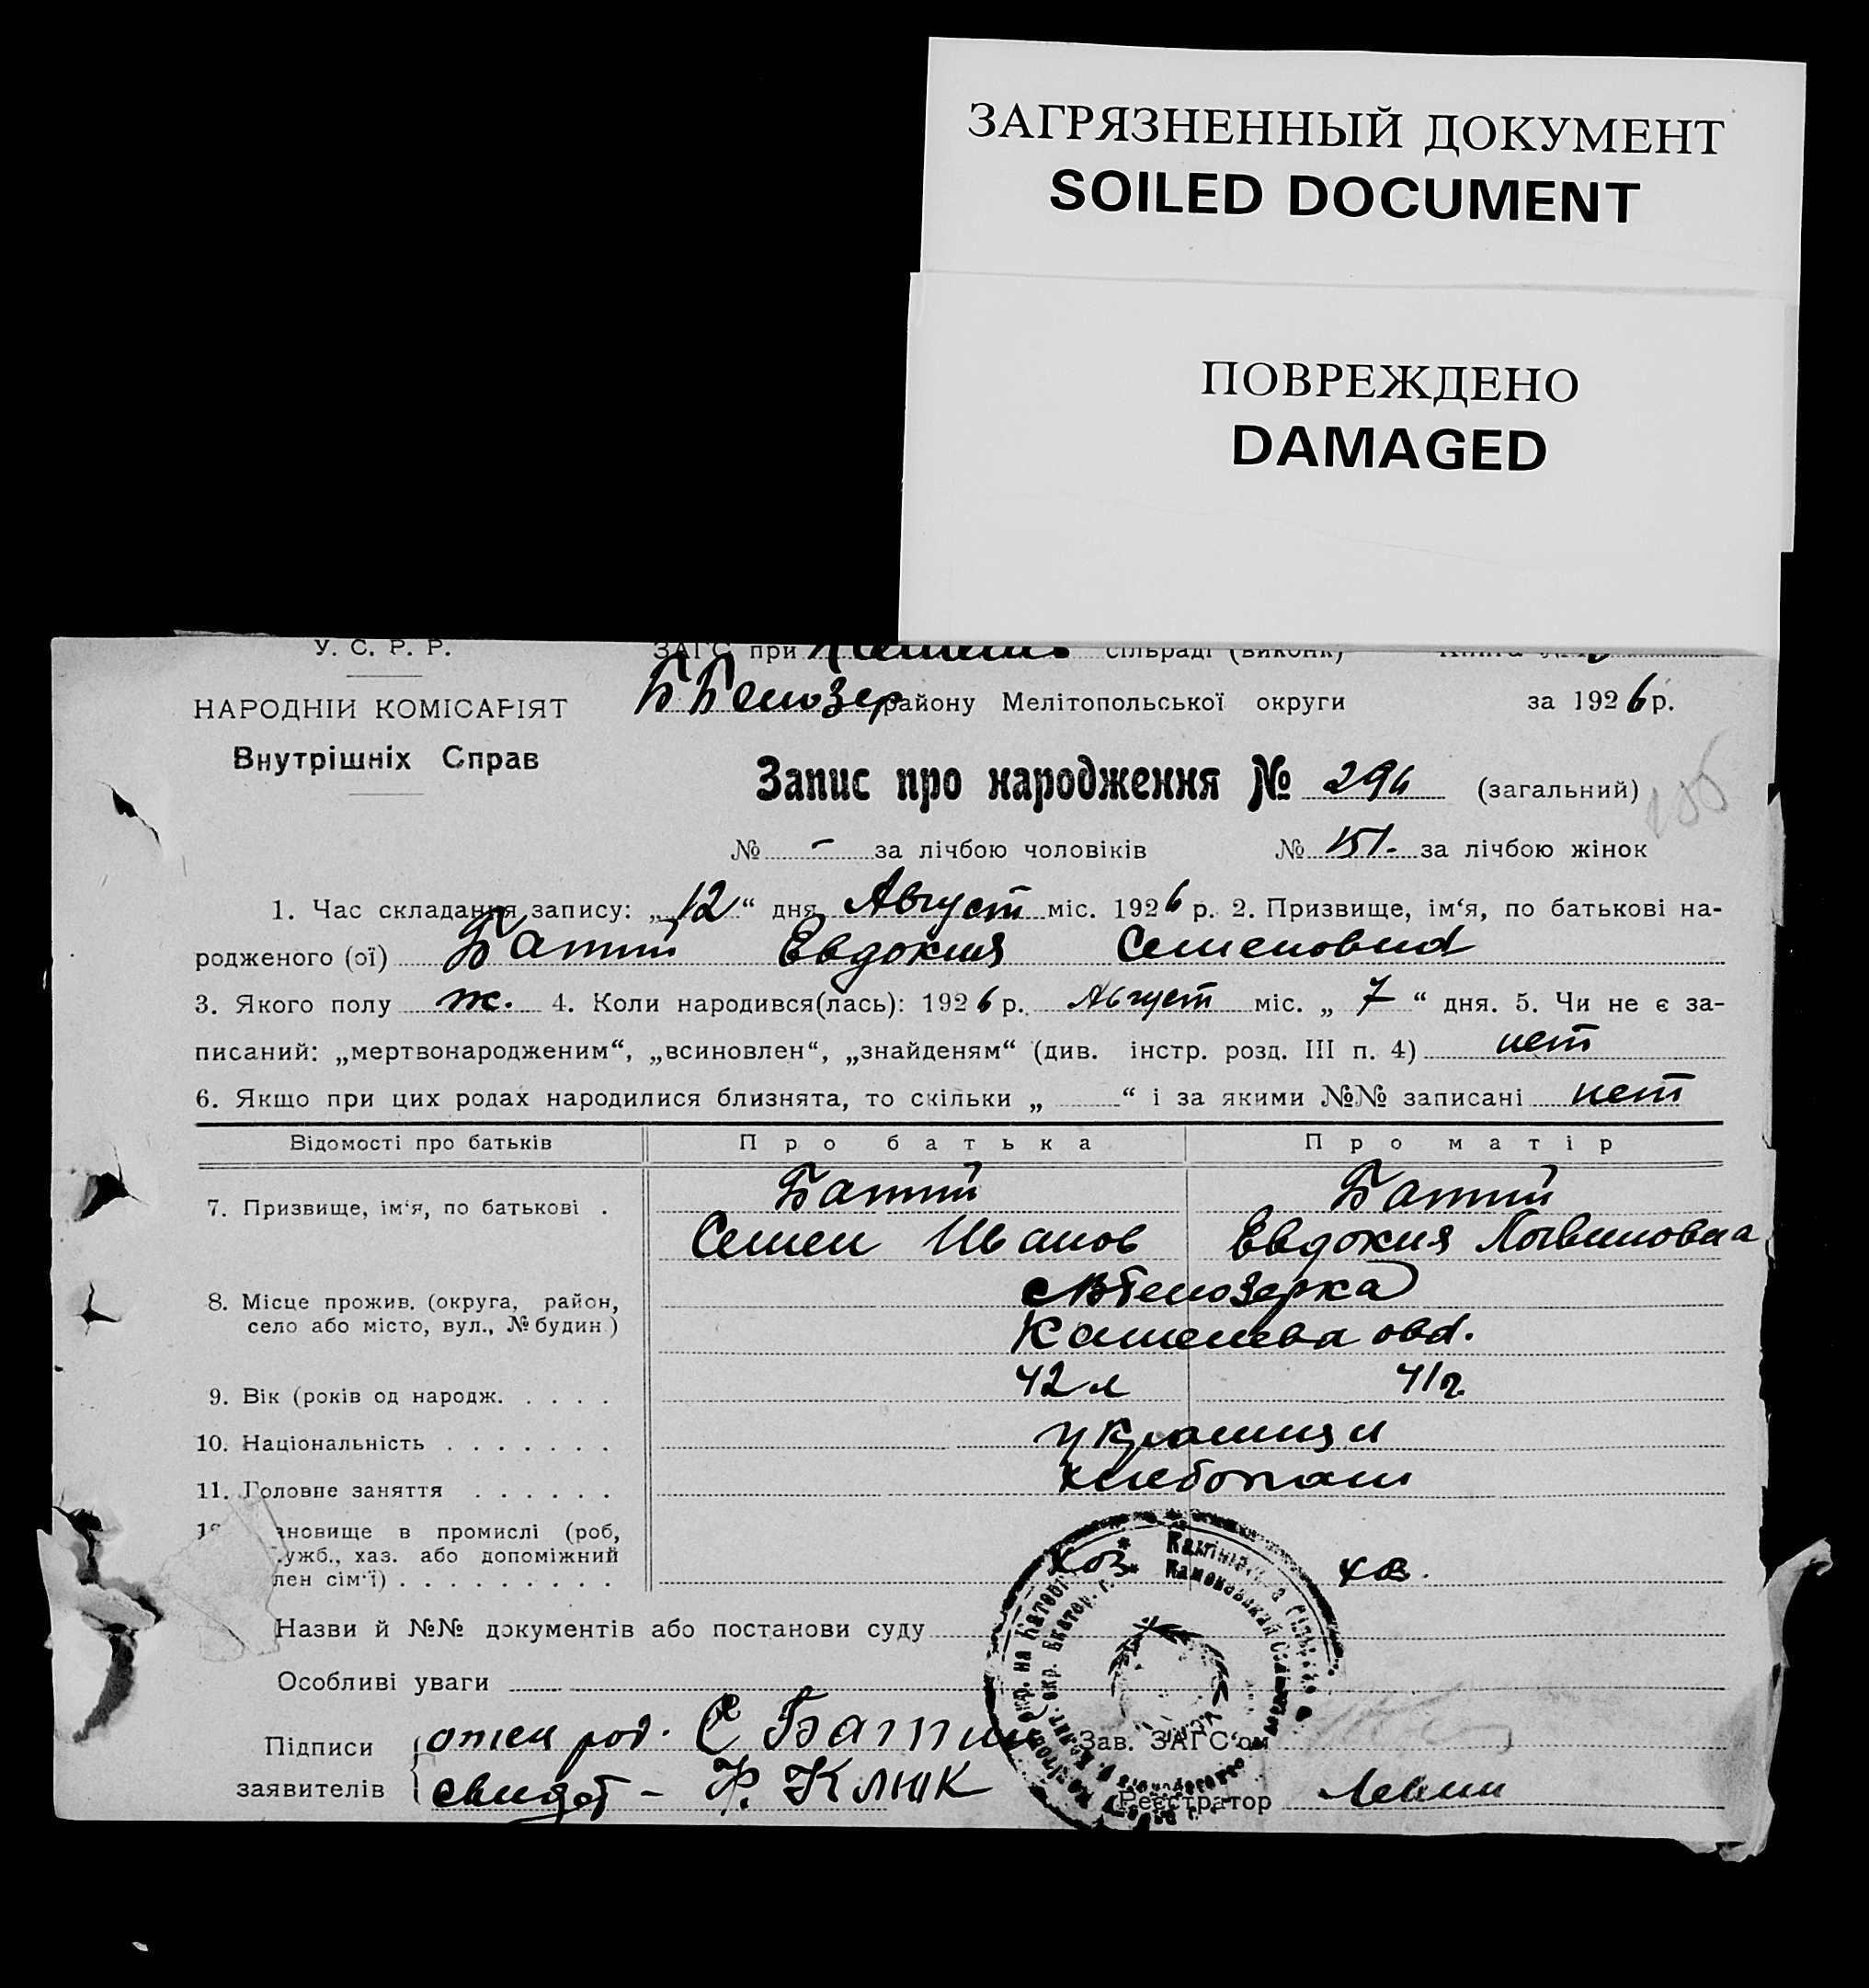 ЗАГРЯЗНЕННЫЙ ДОКУМЕНТ
SOILED DOCUMENT
ПОВРЕЖДЕНО
DAMAGED
У. С. Р. Р.
ЗАГС при сільраді (виконк)
НАРОДНІЙ КОМІСАРІЯТ
Внутрішніх Справ
району Мелітопольської округи за 1926 р.
Запис про народження № 294 (загальний)
№ – за лічбою чоловіків № 151. за лічбою жінок
1. Час складання запису: „12“ дня Август міс. 1926 р. 2. Призвище, ім‘я, по батькові на-
родженого (ої) Батий Евдокия Семеновна
3. Якого полу ж. 4. Коли народився(лась): 1926 р. Август міс. „7“ дня. 5. Чи не є за-
писаний: „мертвонародженим“, „всиновлен“, „знайденям“ (див. інстр. розд. III п. 4) нет
6. Якщо при цих родах народилися близнята, то скільки „ “ і за якими №№ записані нет
Відомості про батьків Про батька Про матір
7. Призвище, ім‘я, по батькові . Батий Батий
Семен Иванов Евдокия Логвиновна
8. Місце прожив. (округа, район,
село або місто, вул., № будин.)
9. Вік (років од народж. . . . . 42 л 41 г.
10. Національність . . . . . . .
11. Головне заняття . . . . . . хлебопаш
ановище в промислі (роб,
ужб., хаз. або допоміжний Хоз. хоз.
лен сім‘ї) . . . . . . . . .
Назви й №№ документів або постанови суду
Особливі уваги
Підписи
заявителів
отец род. С Батий
свидет – Ф. Клюк
Зав. ЗАГС‘ом
Реєстратор